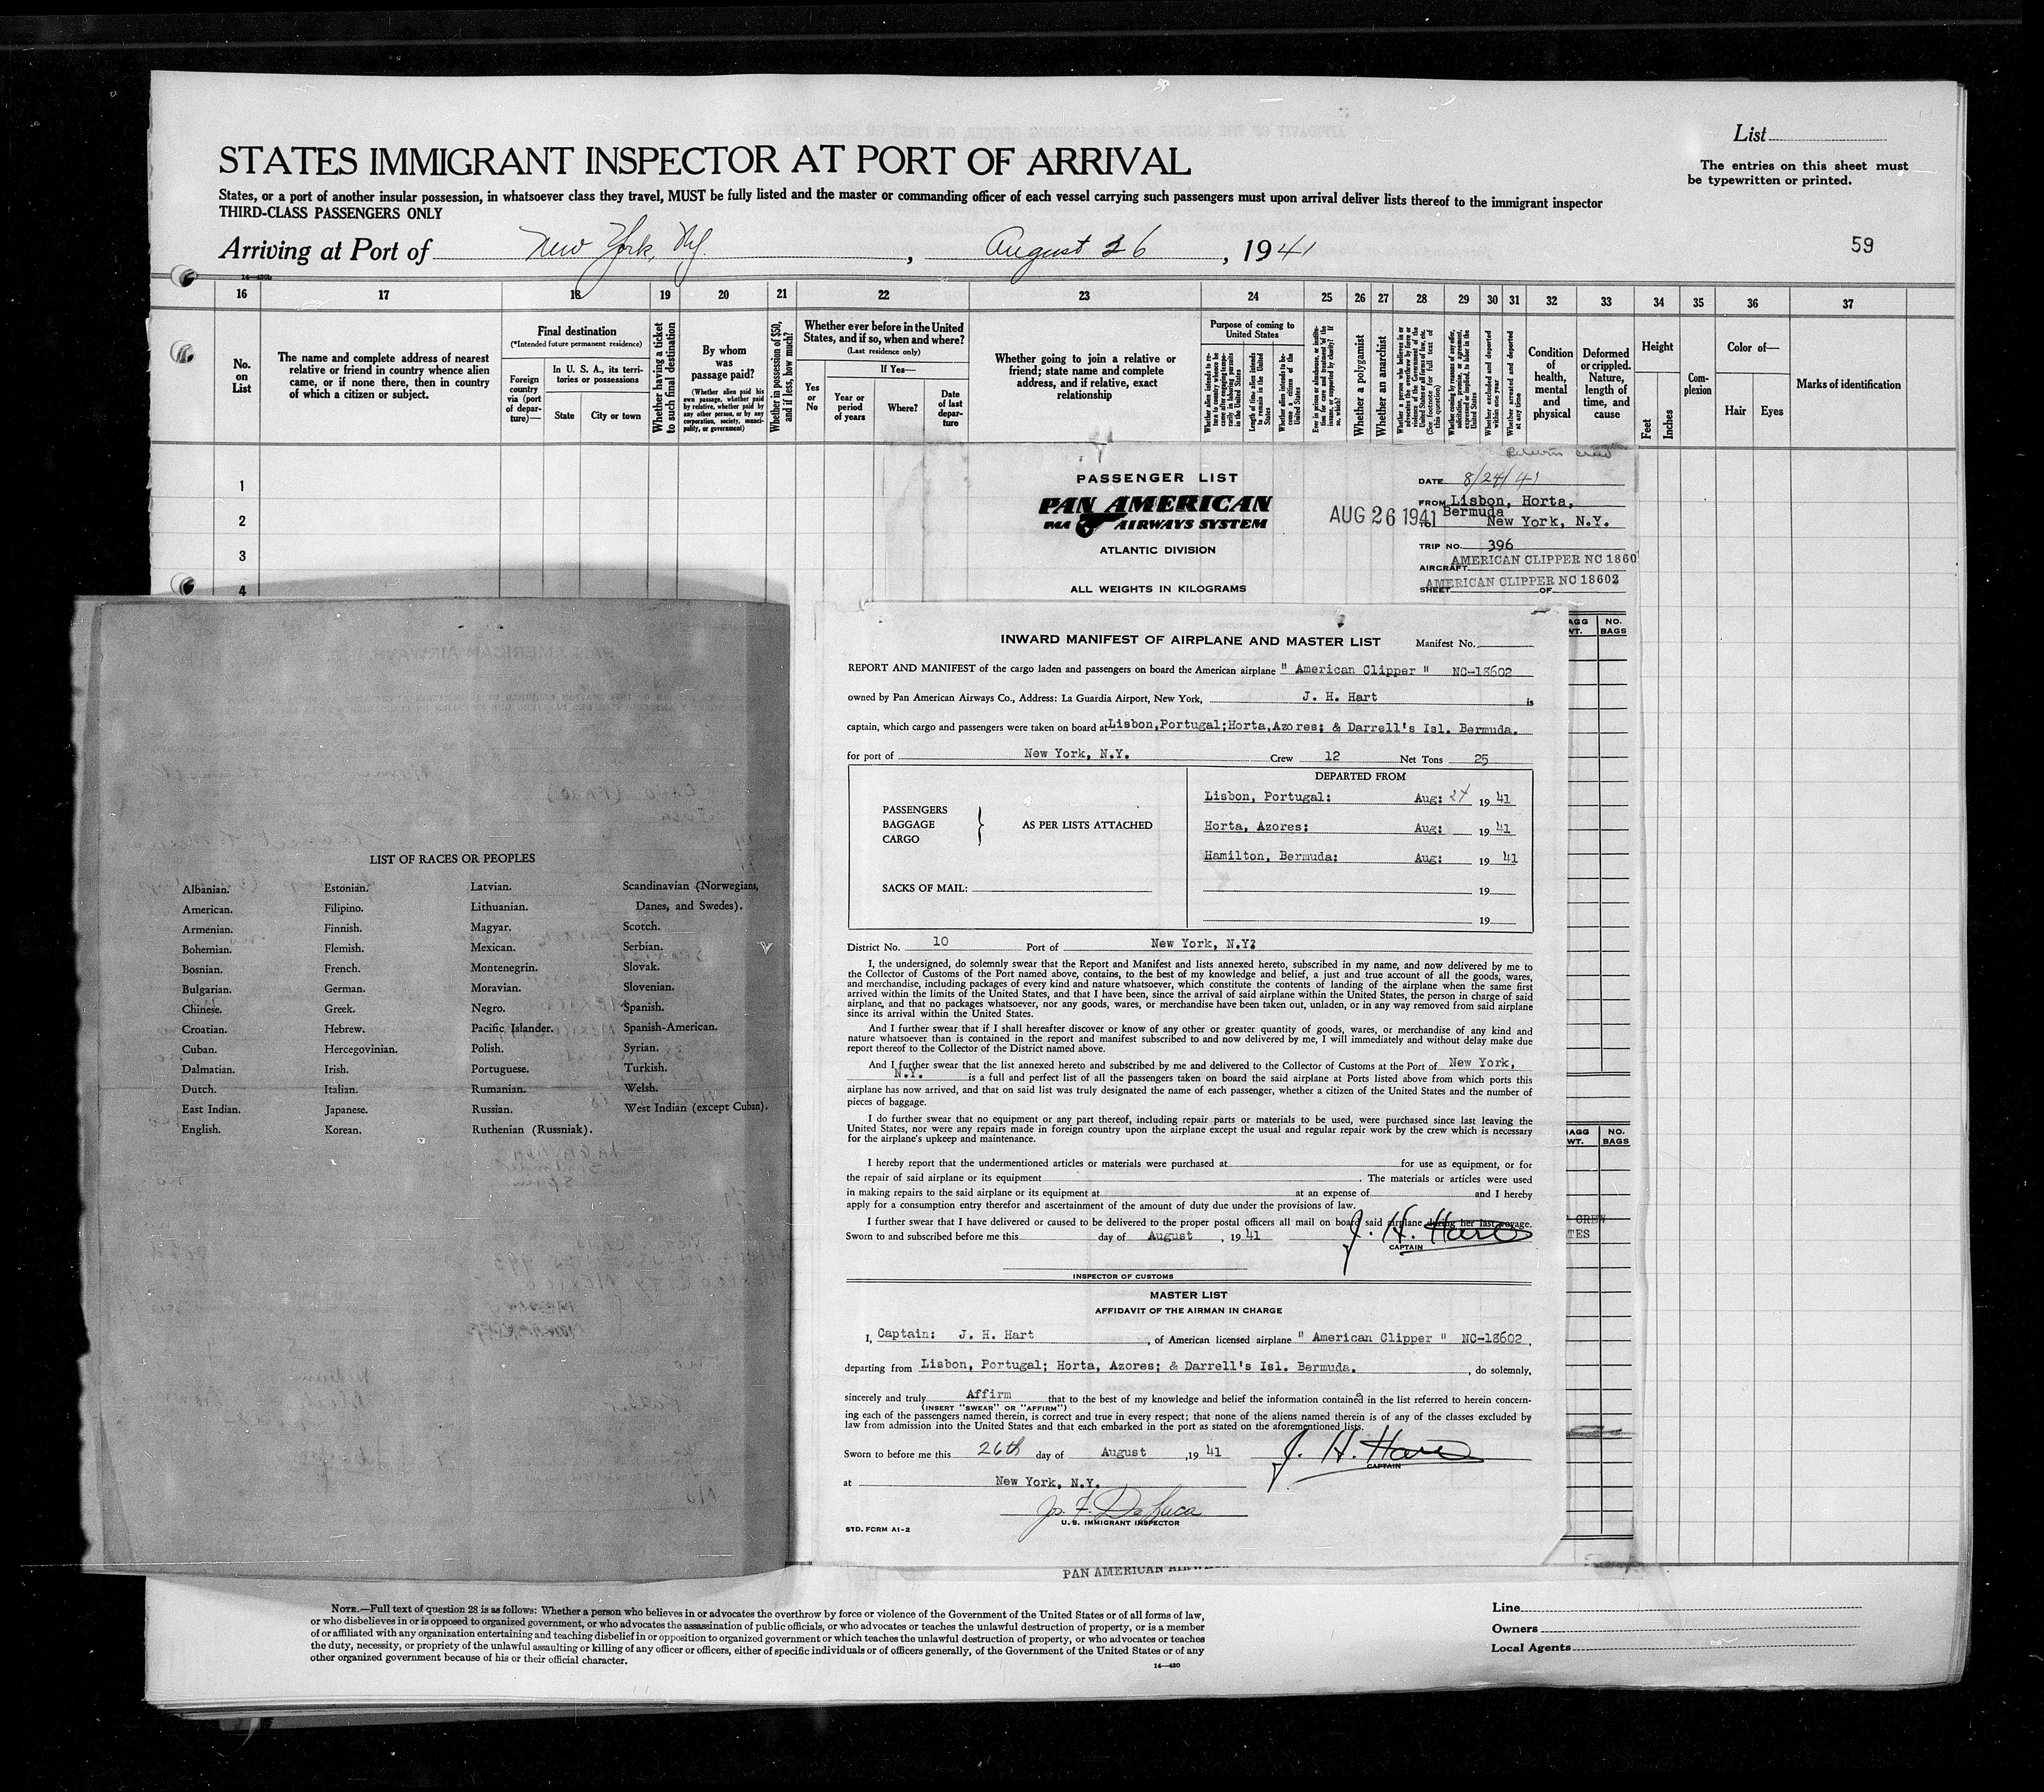 List
The entries on this sheet must
be typewritten or printed.
STATES IMMIGRANT INSPECTOR AT PORT OF ARRIVAL
States, or a port of another insular possession, in whatsoever class they travel, MUST be fully listed and the master or commanding officer of each vessel carrying such passengers must upon arrival deliver lists thereof to the immigrant inspector
THIRD-CLASS PASSENGERS ONLY
Arriving at Port of New York, NY. , August 26 , 1941
59
14—430b
16 17 18 19 20 21 22 23 24 25 26 27 28 29 30 31 32 33 34 35 36 37
No. on List
The name and complete address of nearest
relative or friend in country whence alien
came, or if none there, then in country
of which a citizen or subject.
Final destination
(*Intended future permanent residence)
Foreign country via (port of departure)—
In U. S. A., its territories or possessions
State
City or town
Whether having a ticket to such final destination
By whom was passage paid?
(Whether alien paid his own passage, whether paid by relative, whether paid by any other person, or by any corporation, society, municipality, or government)
Whether in possession of $50, and if less, how much?
Whether ever before in the United
States, and if so, when and where?
(Last residence only)
Yes or No
If Yes—
Year or period of years
Where?
Date of last departure
Whether going to join a relative or
friend; state name and complete
address, and if relative, exact
relationship
Purpose of coming to United States
Whether alien intends to return to country whence he came after engaging temporarily in laboring pursuits in the United States
Length of time alien intends to remain in the United States
Whether alien intends to become a citizen of the United States
Whether a polygamist
Whether an anarchist
Whether excluded and deported within one year
Whether arrested and deported at any time
Condition of health, mental and physical
Deformed or crippled. Nature, length of time, and cause
Height
Feet
Inches
Complexion
Color of—
Hair
Eyes
Marks of identification
1
2
3
4
PASSENGER LIST
PAN AMERICAN
PAA AIRWAYS SYSTEM
ATLANTIC DIVISION
ALL WEIGHTS IN KILOGRAMS
AUG 26 1941
DATE 8/24/41
FROM Lisbon, Horta,
Bermuda
TO New York, N.Y.
TRIP NO. 396
AMERICAN CLIPPER NC 1860
AIRCRAFT
AMERICAN CLIPPER NC 18602
SHEET OF
AGG WT.
NO. BAGS
INWARD MANIFEST OF AIRPLANE AND MASTER LIST Manifest No.
REPORT AND MANIFEST of the cargo laden and passengers on board the American airplane " American Clipper " NC-18602
owned by Pan American Airways Co., Address: La Guardia Airport, New York, J. H. Hart is
captain, which cargo and passengers were taken on board at Lisbon,Portugal;Horta,Azores; & Darrell's Isl. Bermuda.
for port of New York, N.Y. Crew 12 Net Tons 25
DEPARTED FROM
PASSENGERS
BAGGAGE
CARGO
} AS PER LISTS ATTACHED
Lisbon, Portugal: Aug: 24 19 41
Horta, Azores: Aug: 19 41
Hamilton, Bermuda: Aug: 19 41
SACKS OF MAIL: 19
19
District No. 10 Port of New York, N.Y?
I, the undersigned, do solemnly swear that the Report and Manifest and lists annexed hereto, subscribed in my name, and now delivered by me to
the Collector of Customs of the Port named above, contains, to the best of my knowledge and belief, a just and true account of all the goods, wares,
and merchandise, including packages of every kind and nature whatsoever, which constitute the contents of landing of the airplane when the same first
arrived within the limits of the United States, and that I have been, since the arrival of said airplane within the United States, the person in charge of said
airplane, and that no packages whatsoever, nor any goods, wares, or merchandise have been taken out, unladen, or in any way removed from said airplane
since its arrival within the United States.
And I further swear that if I shall hereafter discover or know of any other or greater quantity of goods, wares, or merchandise of any kind and
nature whatsoever than is contained in the report and manifest subscribed to and now delivered by me, I will immediately and without delay make due
report thereof to the Collector of the District named above.
And I further swear that the list annexed hereto and subscribed by me and delivered to the Collector of Customs at the Port of New York,
N.Y. is a full and perfect list of all the passengers taken on board the said airplane at Ports listed above from which ports this
airplane has now arrived, and that on said list was truly designated the name of each passenger, whether a citizen of the United States and the number of
pieces of baggage.
I do further swear that no equipment or any part thereof, including repair parts or materials to be used, were purchased since last leaving the
United States, nor were any repairs made in foreign country upon the airplane except the usual and regular repair work by the crew which is necessary
for the airplane's upkeep and maintenance.
I hereby report that the undermentioned articles or materials were purchased at for use as equipment, or for
the repair of said airplane or its equipment . The materials or articles were used
in making repairs to the said airplane or its equipment at at an expense of and I hereby
apply for a consumption entry therefor and ascertainment of the amount of duty due under the provisions of law.
I further swear that I have delivered or caused to be delivered to the proper postal officers all mail on board said airplane during her last voyage.
Sworn to and subscribed before me this day of August , 19 41 J. H. Hart
CAPTAIN
INSPECTOR OF CUSTOMS
MASTER LIST
AFFIDAVIT OF THE AIRMAN IN CHARGE
I, Captain: J. H. Hart , of American licensed airplane " American Clipper " NC-18602 ,
departing from Lisbon, Portugal; Horta, Azores; & Darrell's Isl. Bermuda. , do solemnly,
sincerely and truly Affirm that to the best of my knowledge and belief the information contained in the list referred to herein concern-
(INSERT "SWEAR" OR "AFFIRM")
ing each of the passengers named therein, is correct and true in every respect; that none of the aliens named therein is of any of the classes excluded by
law from admission into the United States and that each embarked in the port as stated on the aforementioned lists.
Sworn to before me this 26th day of August , 19 41 J. H. Hart
CAPTAIN
at New York, N.Y.
Jos. F. DeLuca
U. S. IMMIGRANT INSPECTOR
STD. FORM A1-2
AGG WT.
NO. BAGS
CREW
TES
LIST OF RACES OR PEOPLES
Albanian. Estonian. Latvian. Scandinavian (Norwegians,
American. Filipino. Lithuanian. Danes, and Swedes).
Armenian. Finnish. Magyar. Scotch.
Bohemian. Flemish. Mexican. Serbian.
Bosnian. French. Montenegrin. Slovak.
Bulgarian. German. Moravian. Slovenian.
Chinese. Greek. Negro. Spanish.
Croatian. Hebrew. Pacific Islander. Spanish-American.
Cuban. Hercegovinian. Polish. Syrian.
Dalmatian. Irish. Portuguese. Turkish.
Dutch. Italian. Rumanian. Welsh.
East Indian. Japanese. Russian. West Indian (except Cuban).
English. Korean. Ruthenian (Russniak).
PAN AMERICAN
NOTE.—Full text of question 28 is as follows: Whether a person who believes in or advocates the overthrow by force or violence of the Government of the United States or of all forms of law,
or who disbelieves in or is opposed to organized government, or who advocates the assassination of public officials, or who advocates or teaches the unlawful destruction of property, or is a member
of or affiliated with any organization entertaining and teaching disbelief in or opposition to organized government or which teaches the unlawful destruction of property, or who advocates or teaches
the duty, necessity, or propriety of the unlawful assaulting or killing of any officer or officers, either of specific individuals or of officers generally, of the Government of the United States or of any
other organized government because of his or their official character.
14—430
Line
Owners
Local Agents